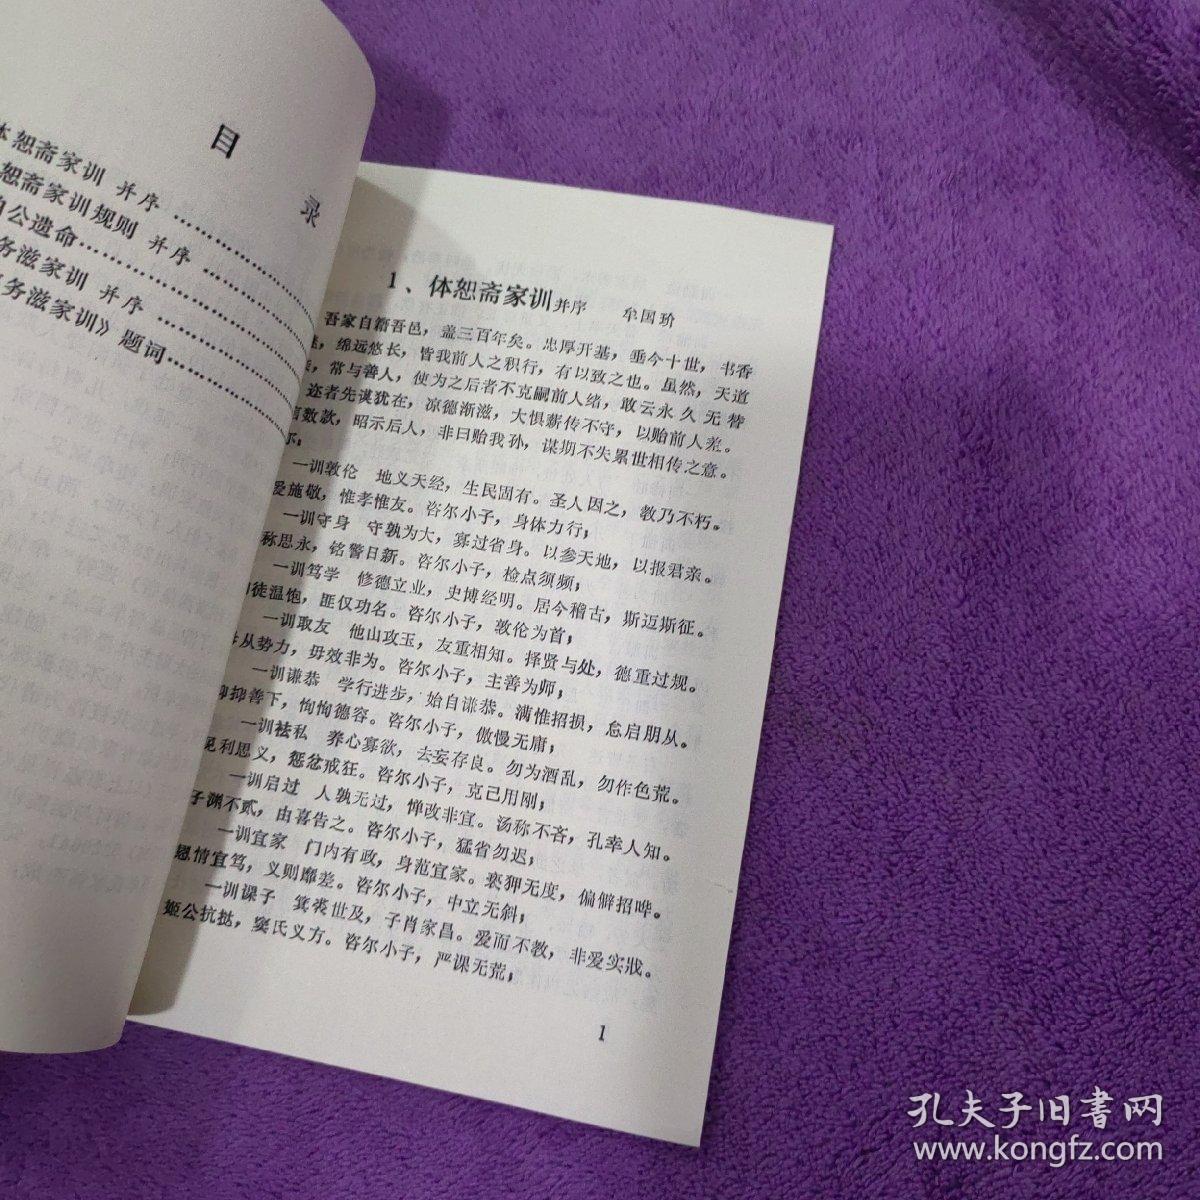 目 录
恕斋家训 并序
恕斋家训规则 并序
公遗命
务滋家训 并序
务滋家训》题词
1、体恕斋家训并序 牟国玠
吾家自籍吾邑，盖三百年矣。忠厚开基，垂今十世，书香
绵远悠长，皆我前人之积行，有以致之也。虽然，天道
常与善人，使为之后者不克嗣前人绪，敢云永久无替
迩者先谟犹在，凉德渐滋，大惧薪传不守，以贻前人羞。
数款，昭示后人，非曰贻我孙，谋期不失累世相传之意。
尔；
一训敦伦 地义天经，生民固有。圣人因之，教乃不朽。
爱施敬，惟孝惟友。咨尔小子，身体力行；
一训守身 守孰为大，寡过省身。以参天地，以报君亲。
称思永，铭警日新。咨尔小子，检点须频；
一训笃学 修德立业，史博经明。居今稽古，斯迈斯征。
徒温饱，匪仅功名。咨尔小子，敦伦为首；
一训取友 他山攻玉，友重相知。择贤与处，德重过规。
从势力，毋效非为。咨尔小子，主善为师；
一训谦恭 学行进步，始自谦恭。满惟招损，怠启朋从。
抑抑善下，恂恂德容。咨尔小子，傲慢无庸；
一训祛私 养心寡欲，去妄存良。勿为酒乱，勿作色荒。
见利思义，惩忿戒狂。咨尔小子，克己用刚；
一训启过 人孰无过，惮改非宜。汤称不吝，孔幸人知。
子渊不贰，由喜告之。咨尔小子，猛省勿迟；
一训宜家 门内有政，身范宜家。亵狎无度，偏僻招哗。
恩情宜笃，义则靡差。咨尔小子，中立无斜；
一训课子 箕裘世及，子肖家昌。爱而不教，非爱实戕。
姬公抗挞，窦氏义方。咨尔小子，严课无荒；
1
孔夫子旧书网
www.kongfz.com